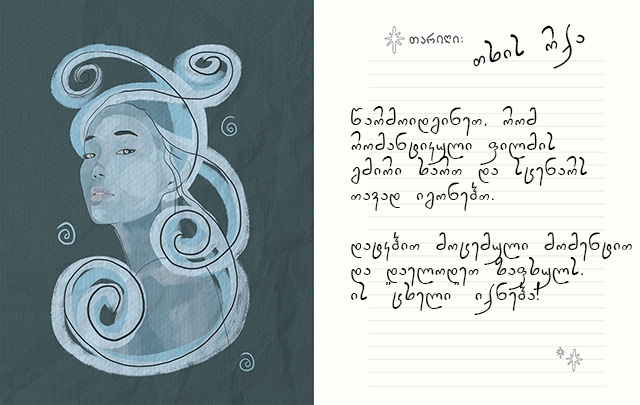 თარიღი: თხის რქა
წარმოიდგინეთ, რომ
რომანტიკული ფილმის
გმირი ხართ და სცენარს
თავად იგონებთ.
დატკბით მოცემული მომენტით
და დაელოდეთ ზაფხულს.
ის "ცხელი" იქნება!